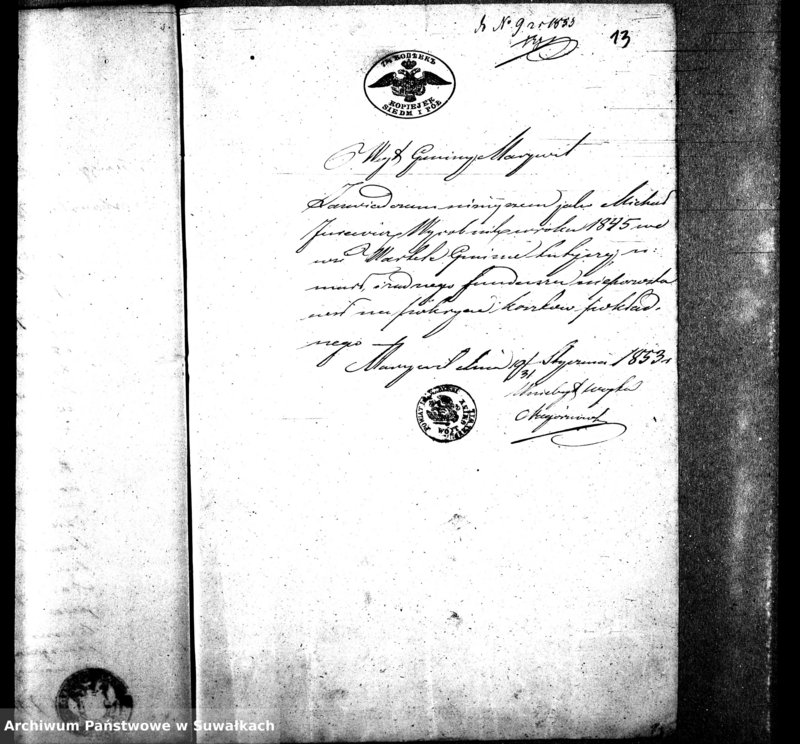 do No 9 r 1853
13
7½ КОПѢЕКЪ
KOPIEJEK
SIEDM I PÓŁ
Wójt Gminy Marywil
Zawiadamia niniejszem jako Michał
Jurewicz Wyrobnik w roku 1845 we
wsi Gminie tutejszej u-
marł, i żadnego funduszu niepozosta
wił na pokrycie kosztów pokład-
nego
Marywil dnia 19/31 Stycznia 1853 r
Wójta
WÓJT
Archiwum Państwowe w Suwałkach